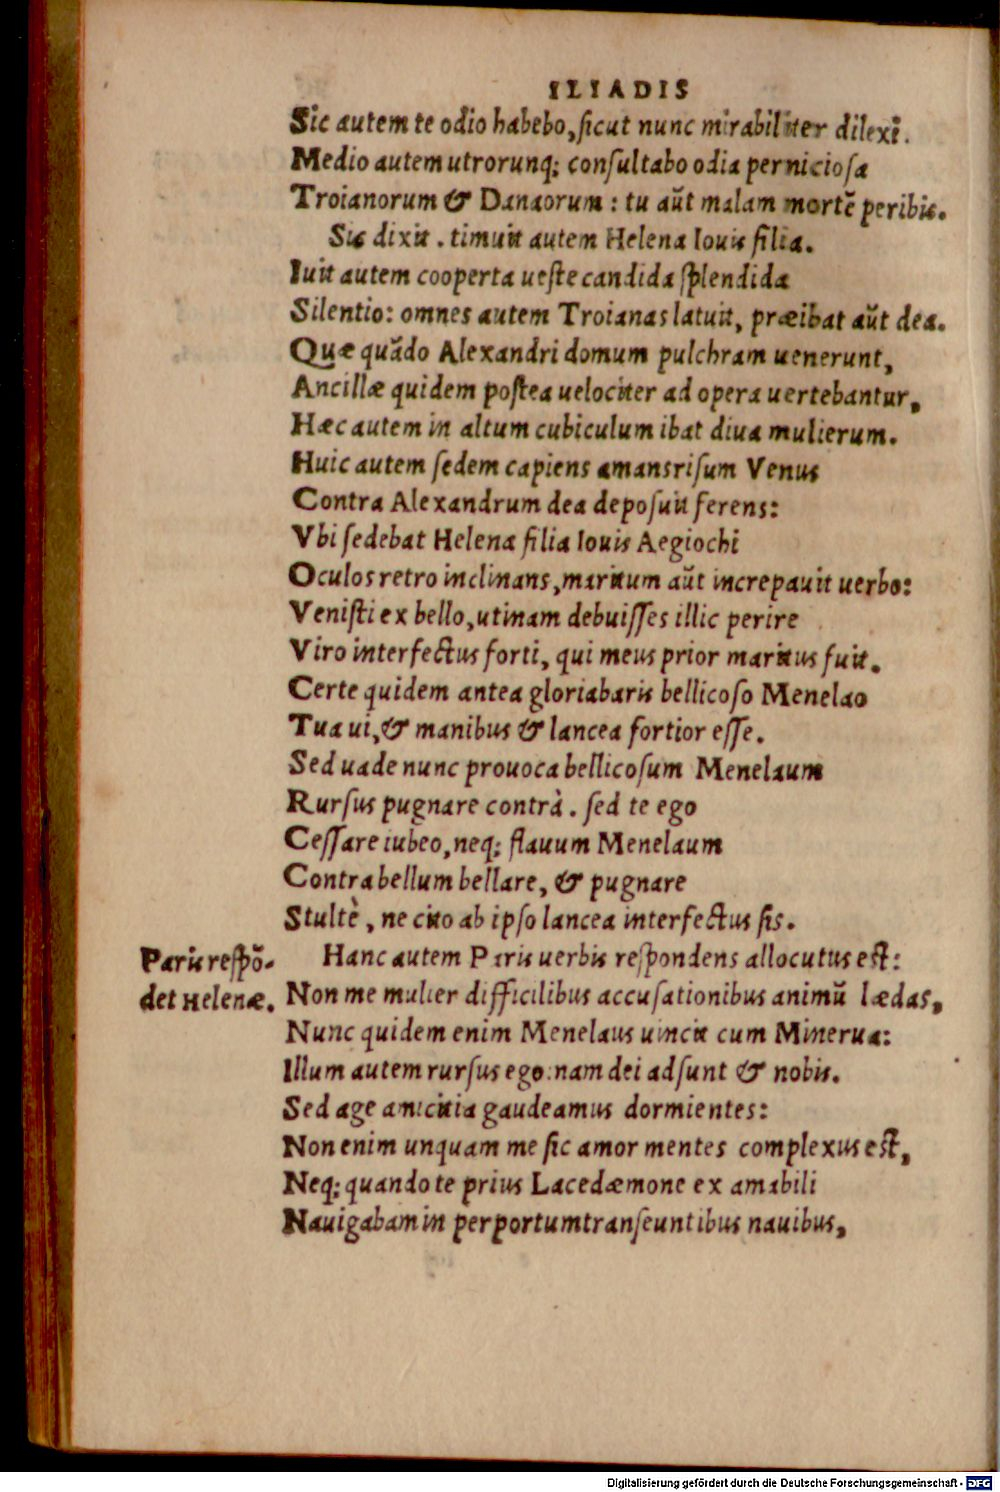 ILIADIS
Sic autem te odio habebo, sicut nunc mirabiliter dilexi.
Medio autem utrorunq; consultabo odia perniciosa
Troianorum & Danaorum : tu aũt malam mortẽ peribis.
Sic dixit . timuit autem Helena Iouis filia.
Iuit autem cooperta ueste candida splendida
Silentio: omnes autem Troianas latuit, præibat aũt dea.
Quæ quãdo Alexandri domum pulchram uenerunt,
Ancillæ quidem postea uelociter ad opera uertebantur,
Hæc autem in altum cubiculum ibat diua mulierum.
Huic autem sedem capiens amansrisum Venus
Contra Alexandrum dea deposuit ferens:
Vbi sedebat Helena filia Iouis Aegiochi
Oculos retro inclinans, maritum aũt increpauit uerbo:
Venisti ex bello, utinam debuisses illic perire
Viro interfectus forti, qui meus prior maritus fuit.
Certe quidem antea gloriabaris bellicoso Menelao
Tua ui, & manibus & lancea fortior esse.
Sed uade nunc prouoca bellicosum Menelaum
Rursus pugnare contrà . sed te ego
Cessare iubeo, neq; flauum Menelaum
Contra bellum bellare, & pugnare
Stultè , ne cito ab ipso lancea interfectus sis.
Paris respõ-
det Helenæ.
Hanc autem Paris uerbis respondens allocutus est:
Non me mulier difficilibus accusationibus animũ lædas,
Nunc quidem enim Menelaus uincit cum Minerua:
Illum autem rursus ego: nam dei adsunt & nobis.
Sed age amicitia gaudeamus dormientes:
Non enim unquam me sic amor mentes complexus est,
Neq; quando te prius Lacedæmone ex amabili
Nauigabam in perportumtranseuntibus nauibus,
Digitalisierung gefördert durch die Deutsche Forschungsgemeinschaft - DFG